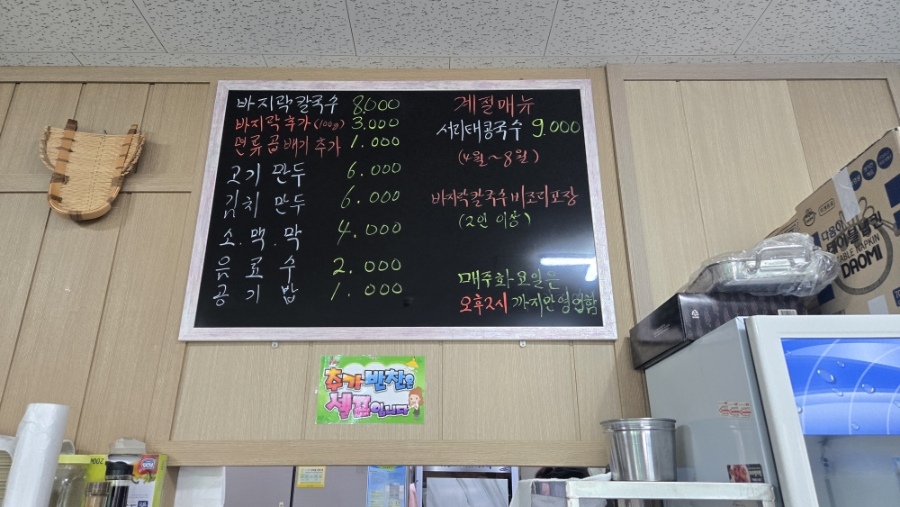 바지락칼국수 8.000
바지락추가(100g) 3.000
면류곱배기추가 1.000
고기만두 6.000
김치만두 6.000
소.맥.막 4.000
음료수 2.000
공기밥 1.000
계절메뉴
서리태콩국수 9.000
(4월~8월)
바지락칼국수비조리포장
(2인 이상)
매주화요일은
오후2시까지만영업함
추가반찬은
셀프입니다
DAOMI